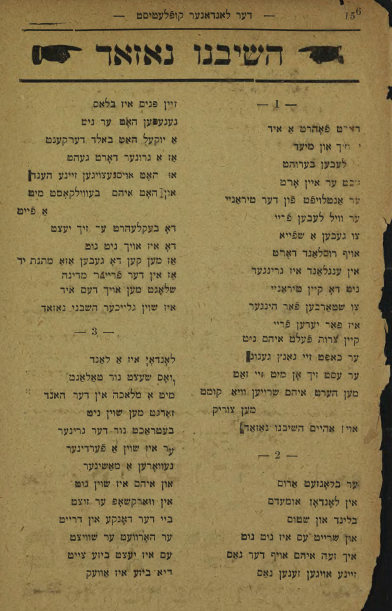 — דער לאנדאנער קופלעטיסט —
156
השיבנו נאזאד
— 1 —
פאהרט א איד
און מיעד
לעבען בערוהט
ער איין ארט
ער אנטלויפט פון דער טיראניי
ער וויל לעבען פריי
צו געבען א שפייא
אויף רוסלאנד דארט
אין ענגלאנד איז גרינגער
ניט דא קיין טיראניי
צו שטארבען פאר הינגער
איז פאר יעדען פריי
קיין צרות פעלט איהם ניט
ער באפט זיי גאנץ גענוג
ער עסט זיך אן מיט זיי זאט
מען הערט איהם שרייען וויא קומט
מען צוריק
אוי! אהיים השיבנו נאזאד
— 2 —
ער בלאנזעט ארום
אין לאנדאן אומעדום
בלינד און שטום
און שרייט עס איז ניט גוט
איך זעה איהם אויף דער גאס
זיינע אויגען זענען נאס
זיין פנים איז בלאס
געגעסען האט ער ניט
א יוקעל האט באלד דערקענט
אז א גרונער דארט געהט
האט אויסגעצויגען זיינע הענד
און האט איהם בעוויליקאמט מיט
א פייט
דא בעקלעהרט ער זיך יעצט
דא איז אויך ניט גוט
אז מען קען דא געבען אזא מתנת יד
אז אין דער פרייער מדינה
שלאגט מען אויך דעם איד
איז שוין גלייכער השבני נאזאד
— 3 —
לאנדאן איז א לאנד
וואס שעצט נור טאלאנט
מיט א מלאכה אין דער האנד
זארגט מען שוין ניט
בעטראכט נור דער גרינער
ער איז שוין א פערדינער
געווארען א מאשינער
און איהם איז שוין גוט
אין ווארקשאפ ער זיצט
ביי דער דאנקע אין דרייט
ער הארעוועט ער שוויצט
עם איז יעצט ביזע צייט
דיא ביזע איז אוועק